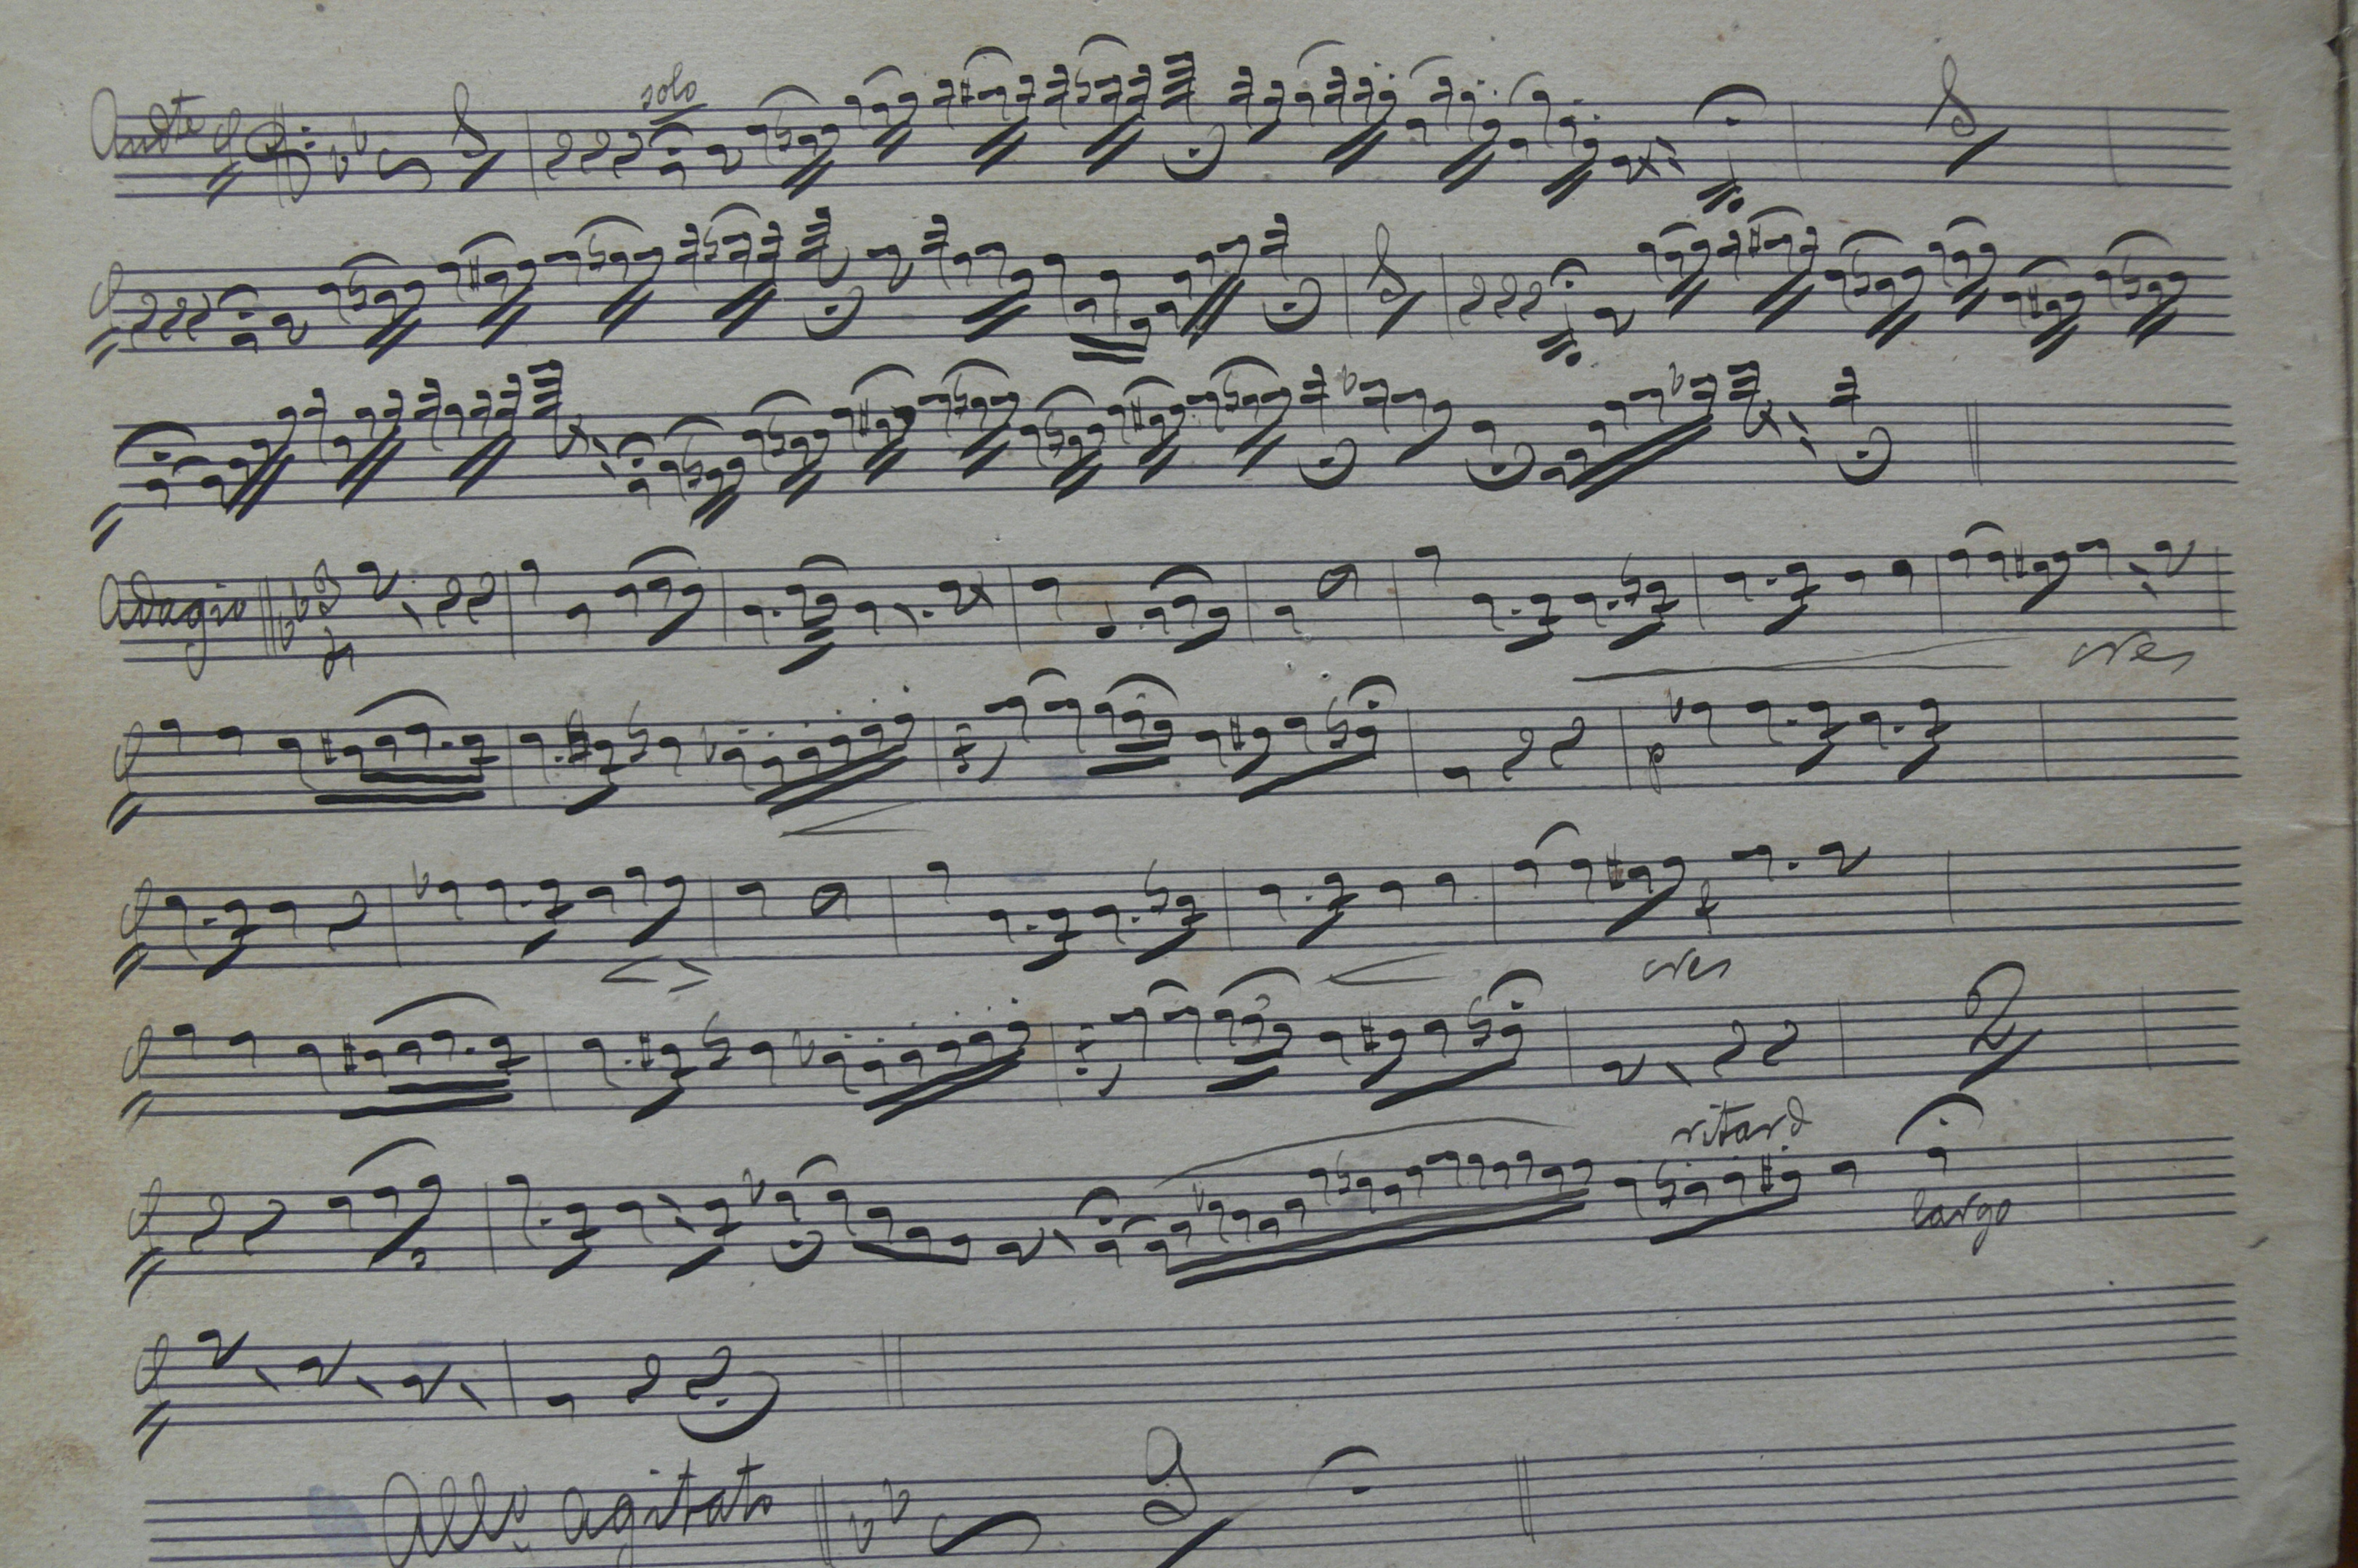 Andte
solo
Adagio 3
cres
p
f
cres
3
2
ritard
3
largo
Allo agitato